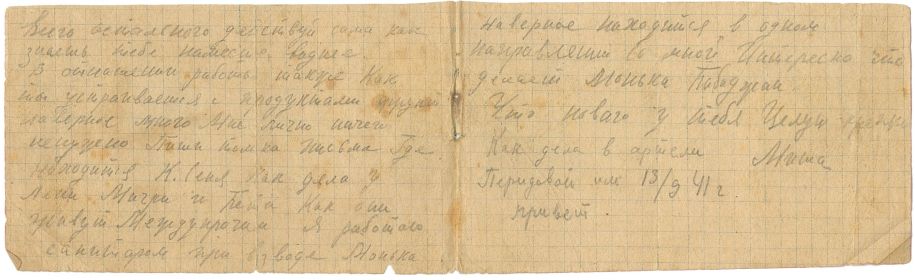 Всего остального действуй сама как
знаеш тебе на месте виднее.
В отношении работы также Как
ты устраиваешся с продуктами
наверное много Мне лично ничего
ненужно Пиши только письма Где
находится К. Сеня Как дела у
Лени Мити и Петя Как они
живут Междупрочим Я работаю
санитаром при взводе Монька
наверное находится в одном
направлении со мной Интересно что
делает Монька
Что нового у тебя Целую
Как дела в артели Миша
13/9 41 г
привет.